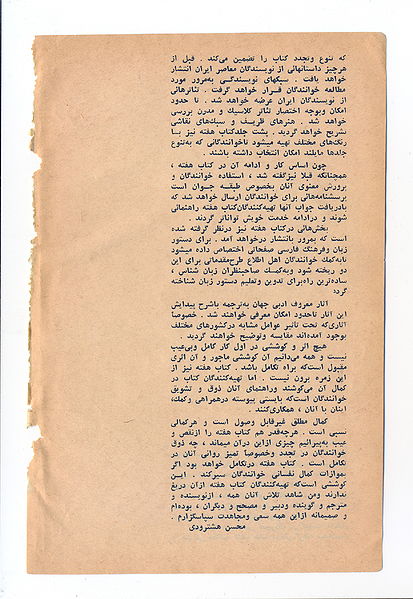 که تنوع وتجدد کتاب را تضمین می‌کند . قبل از
هرچیز داستانهائی از نویسندگان معاصر ایران انتشار
خواهد یافت . سبکهای نویسندگی به‌مرور مورد
مطالعه خوانندگان قرار خواهد گرفت . تئاترهائی
از نویسندگان ایران عرضه خواهد شد . تا حدود
امکان وبوجه اختصار تئاتر کلاسیك و مدرن بررسی
خواهد شد . هنرهای ظریف و سبك‌های نقاشی
تشریح خواهد گردید . پشت جلدکتاب هفته نیز با
رنگ‌های مختلف تهیه میشود تاخوانندگانی که به‌تنوع
جلدها مایلند امکان انتخاب داشته باشند .
چون اساس کار و ادامه آن در کتاب هفته ،
همچنانکه قبلا نیزگفته شد ، استفاده خوانندگان و
پرورش معنوی آنان بخصوص طبقه جوان است
پرسشنامه‌هائی برای خوانندگان ارسال خواهد شد که
بادریافت جواب آنها تهیه‌کنندگان‌کتاب هفته راهنمائی
شوند و درادامه خدمت خویش تواناتر گردند .
بخش‌هائی درکتاب هفته نیز درنظر گرفته شده
است که بمرور بانتشار درخواهد آمد . برای دستور
زبان وفرهنگ فارسی صفحاتی اختصاص داده میشود
تابه‌کمك خوانندگان اهل اطلاع طرح‌مقدماتی برای این
دو ریخته شود وبه‌کمیك صاحبنظران زبان شناس ،
ساده‌ترین راه‌برای تدوین وتعلیم دستور زبان شناخته
گردد
آثار معروف ادبی جهان به‌ترجمه باشرح پیدایش
این آثار تاحدود امکان معرفی خواهند شد . خصوصاً
آثاری‌که تحت تأثیر عوامل مشابه درکشورهای مختلف
بوجود آمده‌اند مقایسه وتوضیح خواهند گردید .
هیچ اثر و کوششی در اول کار کامل وبی‌عیب
نیست و همه می‌دانیم آن کوششی ماجور و آن اثری
مقبول است‌که براه تکامل باشد . کتاب هفته نیز از
این زمره برون نیست . اما تهیه‌کنندگان کتاب در
کمال آن می‌کوشند وراهنمای آنان ذوق و تشویق
خوانندگان است‌که بایستی پیوسته درهمراهی وکمك،
اینان با آنان ، همکاری‌کنند .
کمال مطلق غیرقابل وصول است و هرکمالی
نسبی است . هرچه‌قدر هم کتاب هفته را ازنقص و
عیب به‌پیرائیم چیزی ازاین درآن میماند ، چه ذوق
خوانندگان در تجدد وخصوصاً تمیز روانی آنان در
تکامل است . کتاب هفته درتکامل خواهد بود اگر
بموازات کمال نفسانی خوانندگان سیرکند . این
کوششی است‌که تهیه‌کنندگان کتاب هفته ازآن دریغ
ندارند ومن شاهد تلاش آنان همه ، ازنویسنده و
مترجم و گوینده ودبیر و مصحح و دیگران ، بوده‌ام
و صمیمانه ازاین همه سعی ومجاهدت سپاسگزارم .
محسن هشترودی